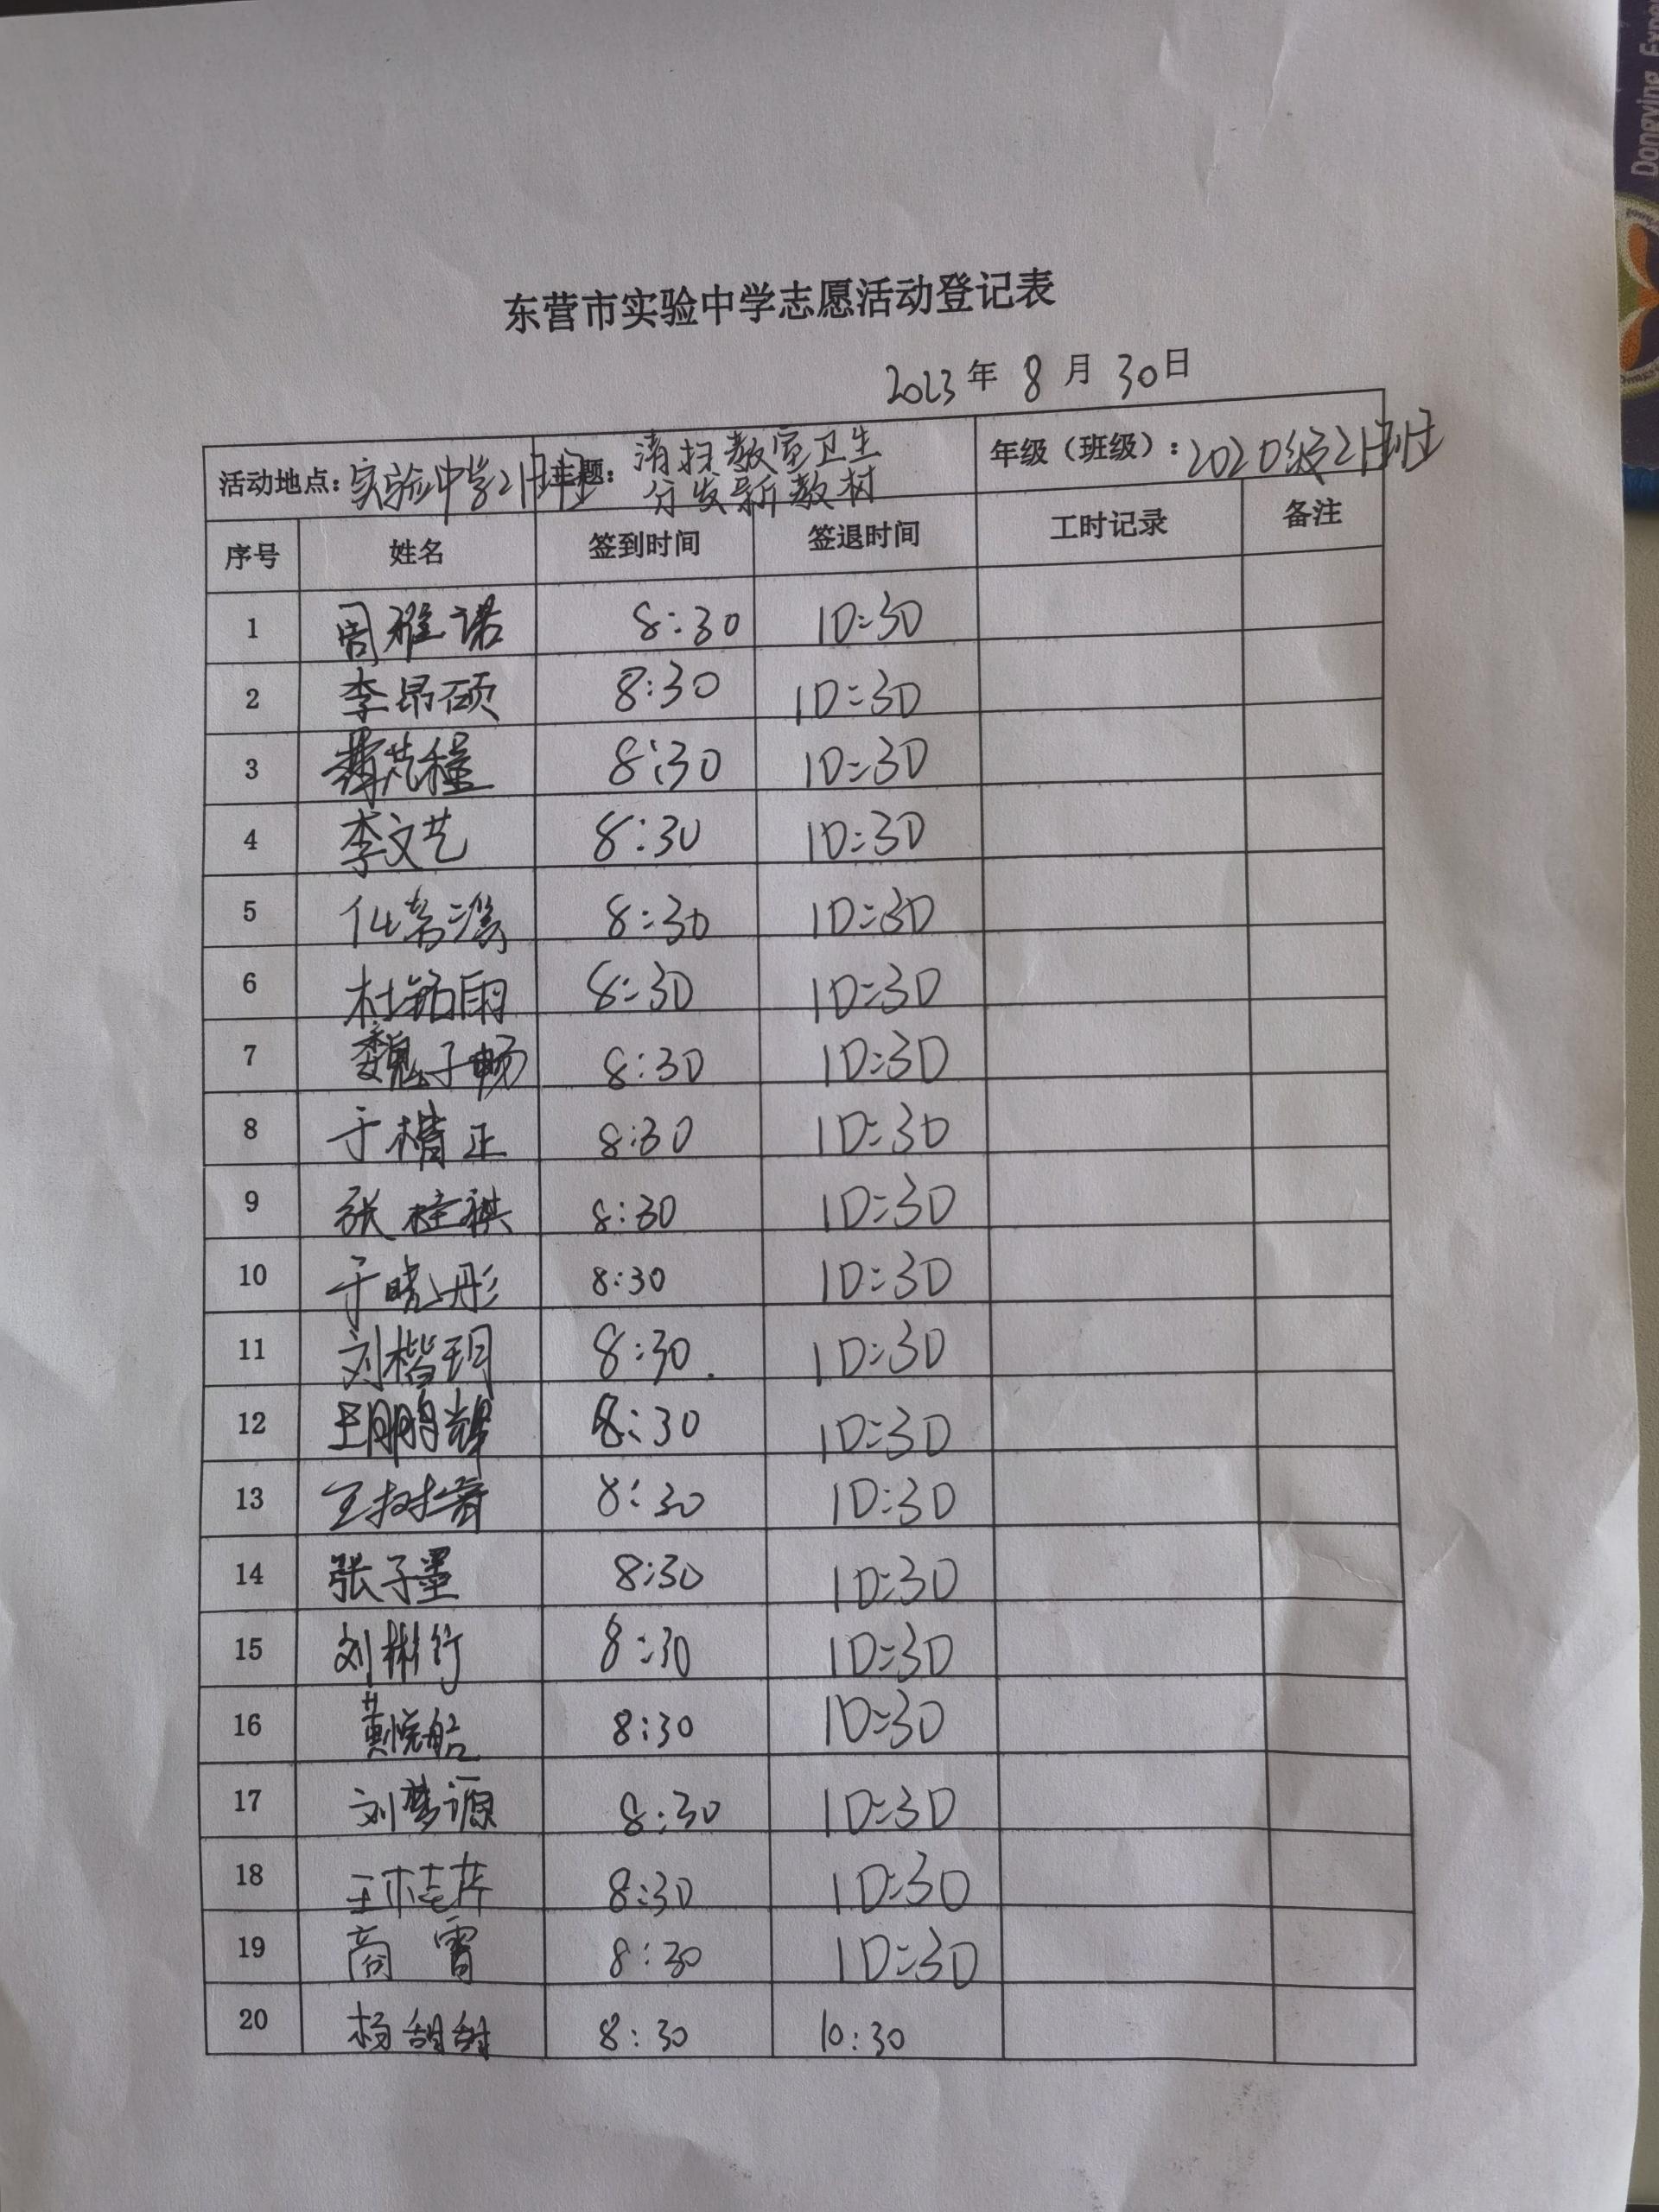 东营市实验中学志愿活动登记表
2023年 8 月 30日
活动地点：实验中学21班 主题：清扫教室卫生 分发新教材 年级（班级）：2020级21班
序号 姓名 签到时间 签退时间 工时记录 备注
1 周雅诺 8:30 10:30
2 李昂硕 8:30 10:30
3 8:30 10:30
4 李文艺 8:30 10:30
5 8:30 10:30
6 杜铭雨 8:30 10:30
7 魏子畅 8:30 10:30
8 于楷正 8:30 10:30
9 张桂祺 8:30 10:30
10 于晓彤 8:30 10:30
11 刘楷玥 8:30 10:30
12 王鹏辉 8:30 10:30
13 8:30 10:30
14 张子墨 8:30 10:30
15 刘彬行 8:30 10:30
16 黄悦船 8:30 10:30
17 刘梦源 8:30 10:30
18 8:30 10:30
19 商霄 8:30 10:30
20 杨甜甜 8:30 10:30
Dongying